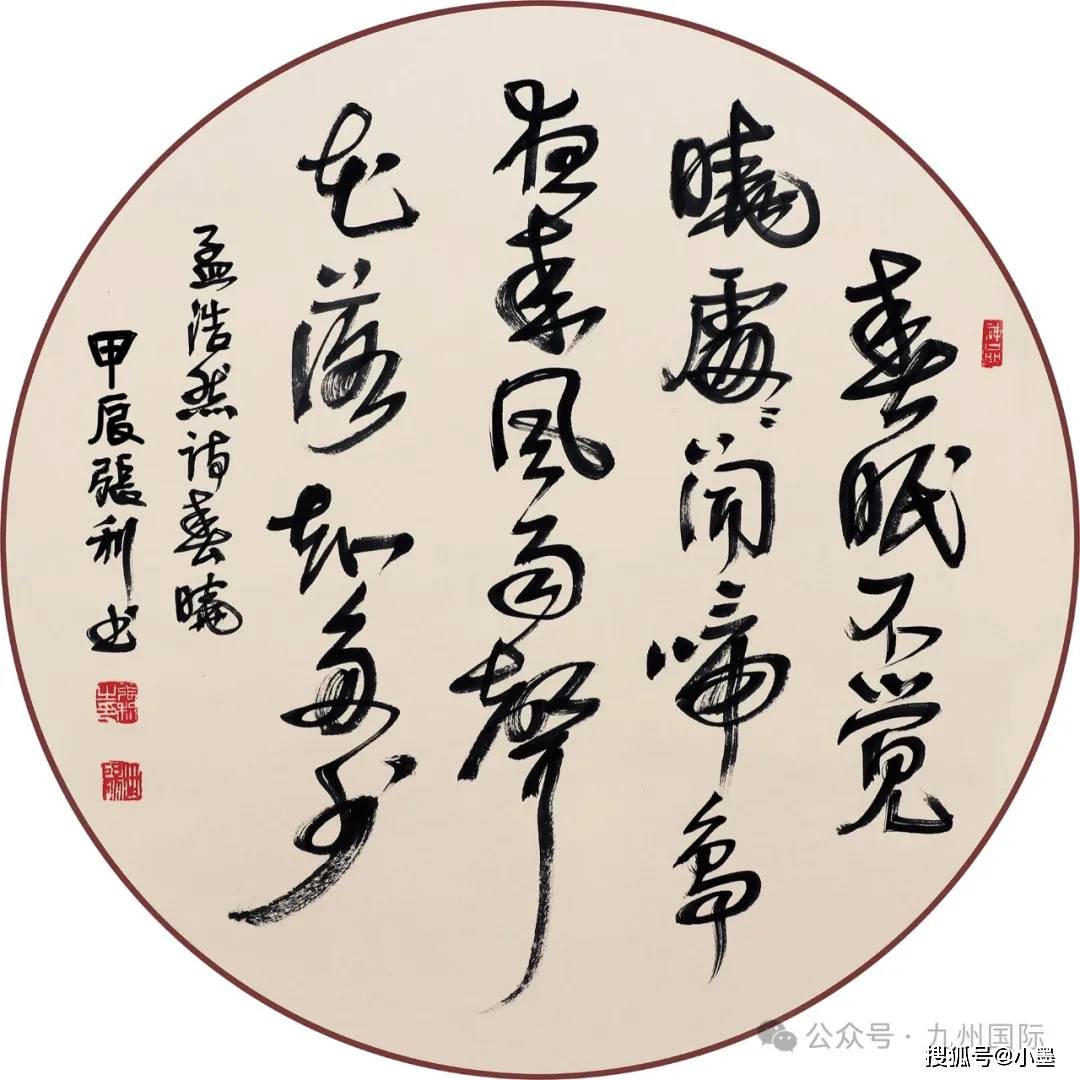 春眠不觉
曉處〻闻啼鸟
夜来风雨聲
花落知多少
孟浩然诗春曉
甲辰張利书
張利之印
公众号·九州国际
搜狐号@小墨